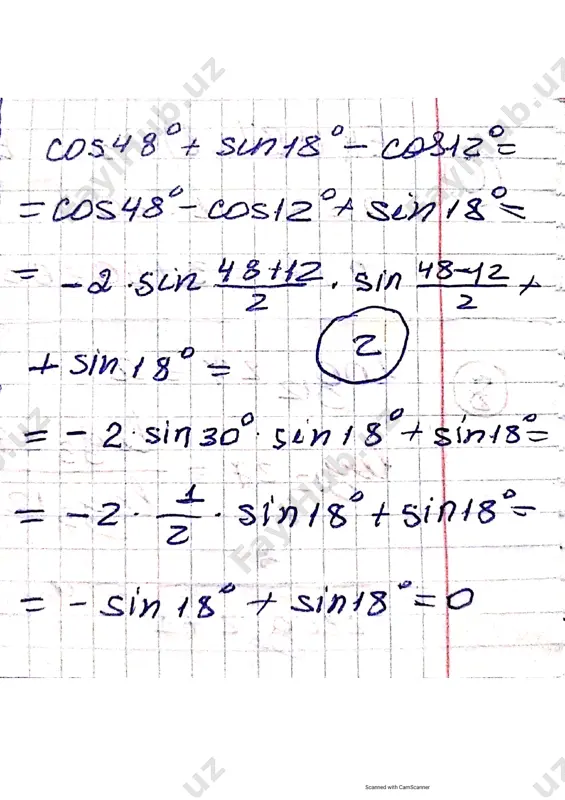 cos48° + sin18° - cos12° =
= cos48° - cos12° + sin18° =
= -2 · sin (48+12)/2 · sin (48-12)/2 +
2
+ sin18° =
= -2 · sin30° · sin18° + sin18° =
= -2 · 1/2 · sin18° + sin18° =
= - sin18° + sin18° = 0
Scanned with CamScanner
FaylHub.uz